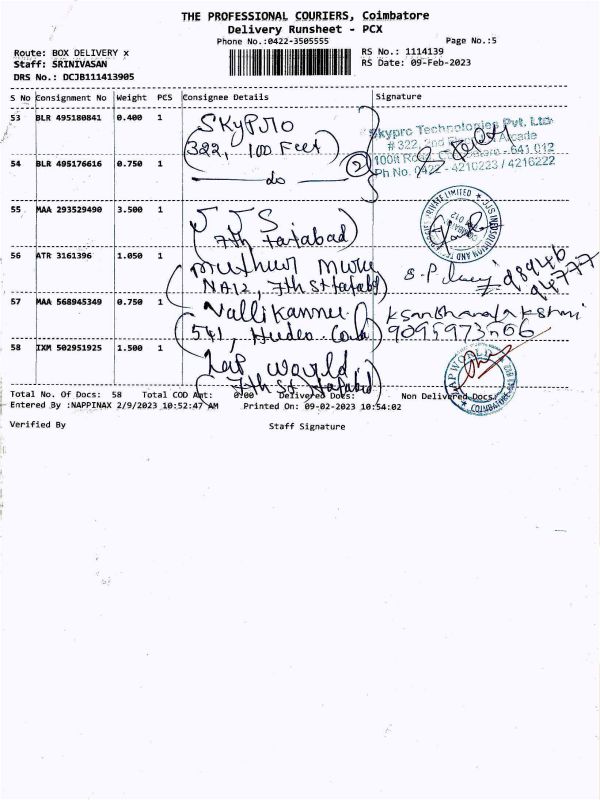 THE PROFESSIONAL COURIERS, Coimbatore
Delivery Runsheet - PCX
Phone No.:0422-3505555 Page No.:5
Route: BOX DELIVERY x RS No.: 1114139
Staff: SRINIVASAN RS Date: 09-Feb-2023
DRS No.: DCJB111413905
S No Consignment No Weight PCS Consignee Details Signature
53 BLR 495180841 0.400 1 SKYPRO
(322, 100 Feet)
Skypro Technologies Pvt. Ltd
# 322, 2nd Arcade
100ft Road, - 641 012
Ph No. 0422 - 4210223 / 4216222
54 BLR 495176616 0.750 1 do 2
55 MAA 293529490 3.500 1 JJS
(7th Tatabad)
PRIVATE LIMITED
56 ATR 3161396 1.050 1
NA12, 7th St Tatabd 98946
94777
57 MAA 568945349 0.750 1
541, 9095973566
58 IXM 502951925 1.500 1 Lap World
7th St Tatabad
LAP WORLD
Total No. Of Docs: 58 Total COD Amt: 0.00 Delivered Docs: Non Delivered Docs:
Entered By :NAPPINAX 2/9/2023 10:52:47 AM Printed On: 09-02-2023 10:54:02
Verified By Staff Signature